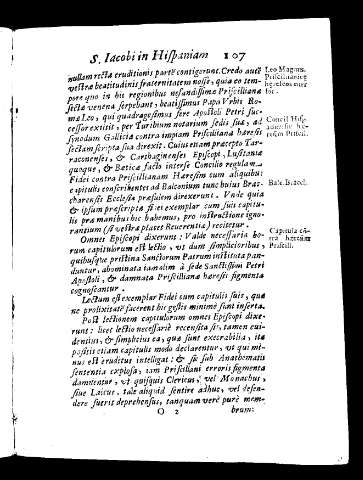 S. Iacobi in Hispaniam 107
nullam rectæ eruditionis parte contigerunt. Credo autē
vestra beatitudinis fraternitatem nosse, quia eo tem-
pore quo in his regionibus nefandissima Prisciliana
secta venena serpebant, beatissimus Papa Vrbis Ro-
ma Leo, qui quadragesimus fere Apostoli Petri suc-
cessor extitit, per Turibium notarium sedis sua, ad
synodum Gallicia contra impiam Prisciliani hæresis
sectam scripta sua direxit. Cuius etiam præcepto Tar-
raconenses, & Carthaginenses Episcopi, Lusitani
quoque, & Bætica facto interse Concilio regulam
Fidei contra Priscillianam Hæresim cum aliquibus
capitulis conscribentes ad Balconium tunc huius Brac-
charensis Ecclesiæ præsulem direxerunt. Vnde quia
& ipsum præscripta fidei exemplar cum suis capitu-
lis præ manibus hic habemus, pro instructione igno-
rantium (si vestra placet Reuerentia) recitetur.
Omnes Episcopi dixerunt: Valde necessaria ho-
rum capitulorum est lectio, vt dum simplicioribus,
quibusque pristina Sanctorum Patrum instituta pan-
dantur, abominata tamalin à sede Sanctissimi Petri
Apostoli, & damnata Prisciliana hæresis figmenta
cognoscantur.
Lectum est exemplar Fidei cum capitulis suis, quæ
ne prolixitatē facerent his gestis minimè sunt inserta.
Post lectionem capitulorum omnes Episcopi dixe-
runt: licet lectio necessariè recensita sit, tamen eui-
dentius, & simplicius ea, quæ sunt execrabilia, ita
positis etiam capitulis modò declarentur, vt qui mi-
nus est eruditus intelligat: & sic sub Anathematis
sententia explosa, iam Prisciliani erroris figmenta
damnentur, vt quisquis Clericus, vel Monachus,
siue Laicus, tale aliquid sentire adhuc, vel defen-
dere fuerit deprehensus, tanquam verè purè mem-
O 2 brum:
Leo Magnus.
Priscilianicæ
hæreseos
tor.
Concil Hisp.
aduersus hæ-
resim Priscil.
Balc. Bracch.
Capitula cō-
tra hæresim
Priscill.